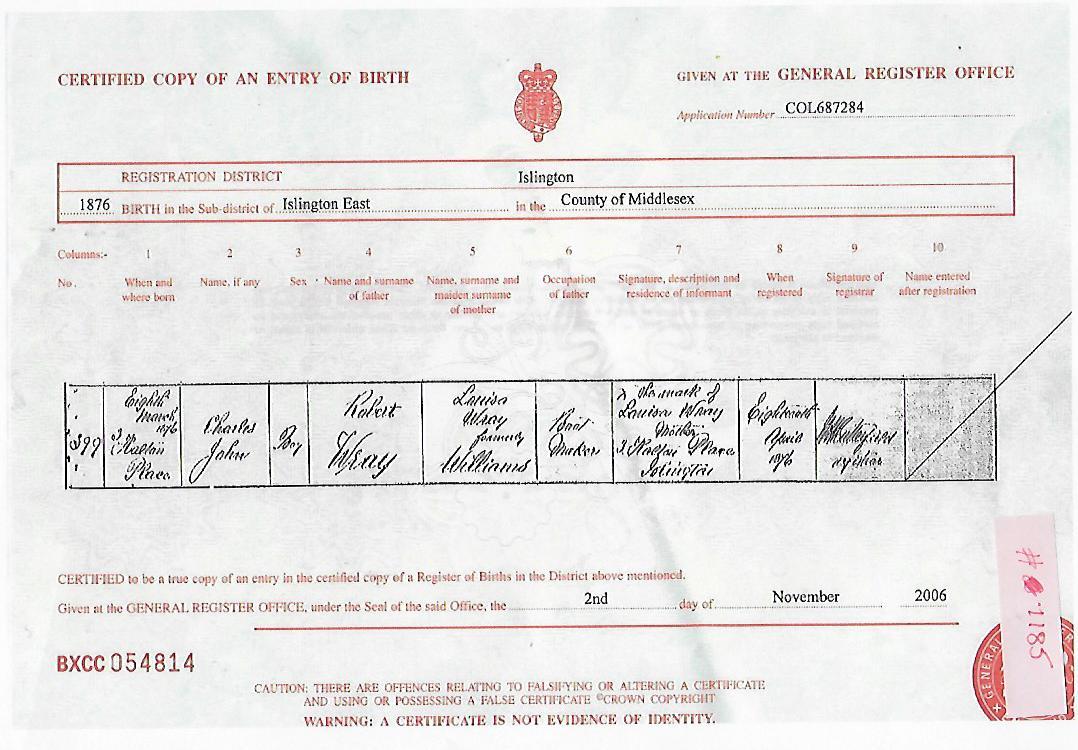 CERTIFIED COPY OF AN ENTRY OF BIRTH
GIVEN AT THE GENERAL REGISTER OFFICE
Application Number COL687284
REGISTRATION DISTRICT Islington
1876 BIRTH in the Sub-district of Islington East in the County of Middlesex
Columns:- 1 2 3 4 5 6 7 8 9 10
No. When and where born
Name, if any
Sex
Name and surname of father
Name, surname and maiden surname of mother
Occupation of father
Signature, description and residence of informant
When registered
Signature of registrar
Name entered after registration
399
Eighth
March
1876
3
Place
Charles
John
Boy
Robert
Wray
Louisa
Wray
formerly
Williams
Boot
Maker
X The mark of
Louisa Wray
Mother
3 Place
Islington
Eighteenth
April
1876
Registrar
CERTIFIED to be a true copy of an entry in the certified copy of a Register of Births in the District above mentioned.
Given at the GENERAL REGISTER OFFICE, under the Seal of the said Office, the 2nd day of November 2006
BXCC 054814
CAUTION: THERE ARE OFFENCES RELATING TO FALSIFYING OR ALTERING A CERTIFICATE
AND USING OR POSSESSING A FALSE CERTIFICATE ©CROWN COPYRIGHT
WARNING: A CERTIFICATE IS NOT EVIDENCE OF IDENTITY.
GENERAL